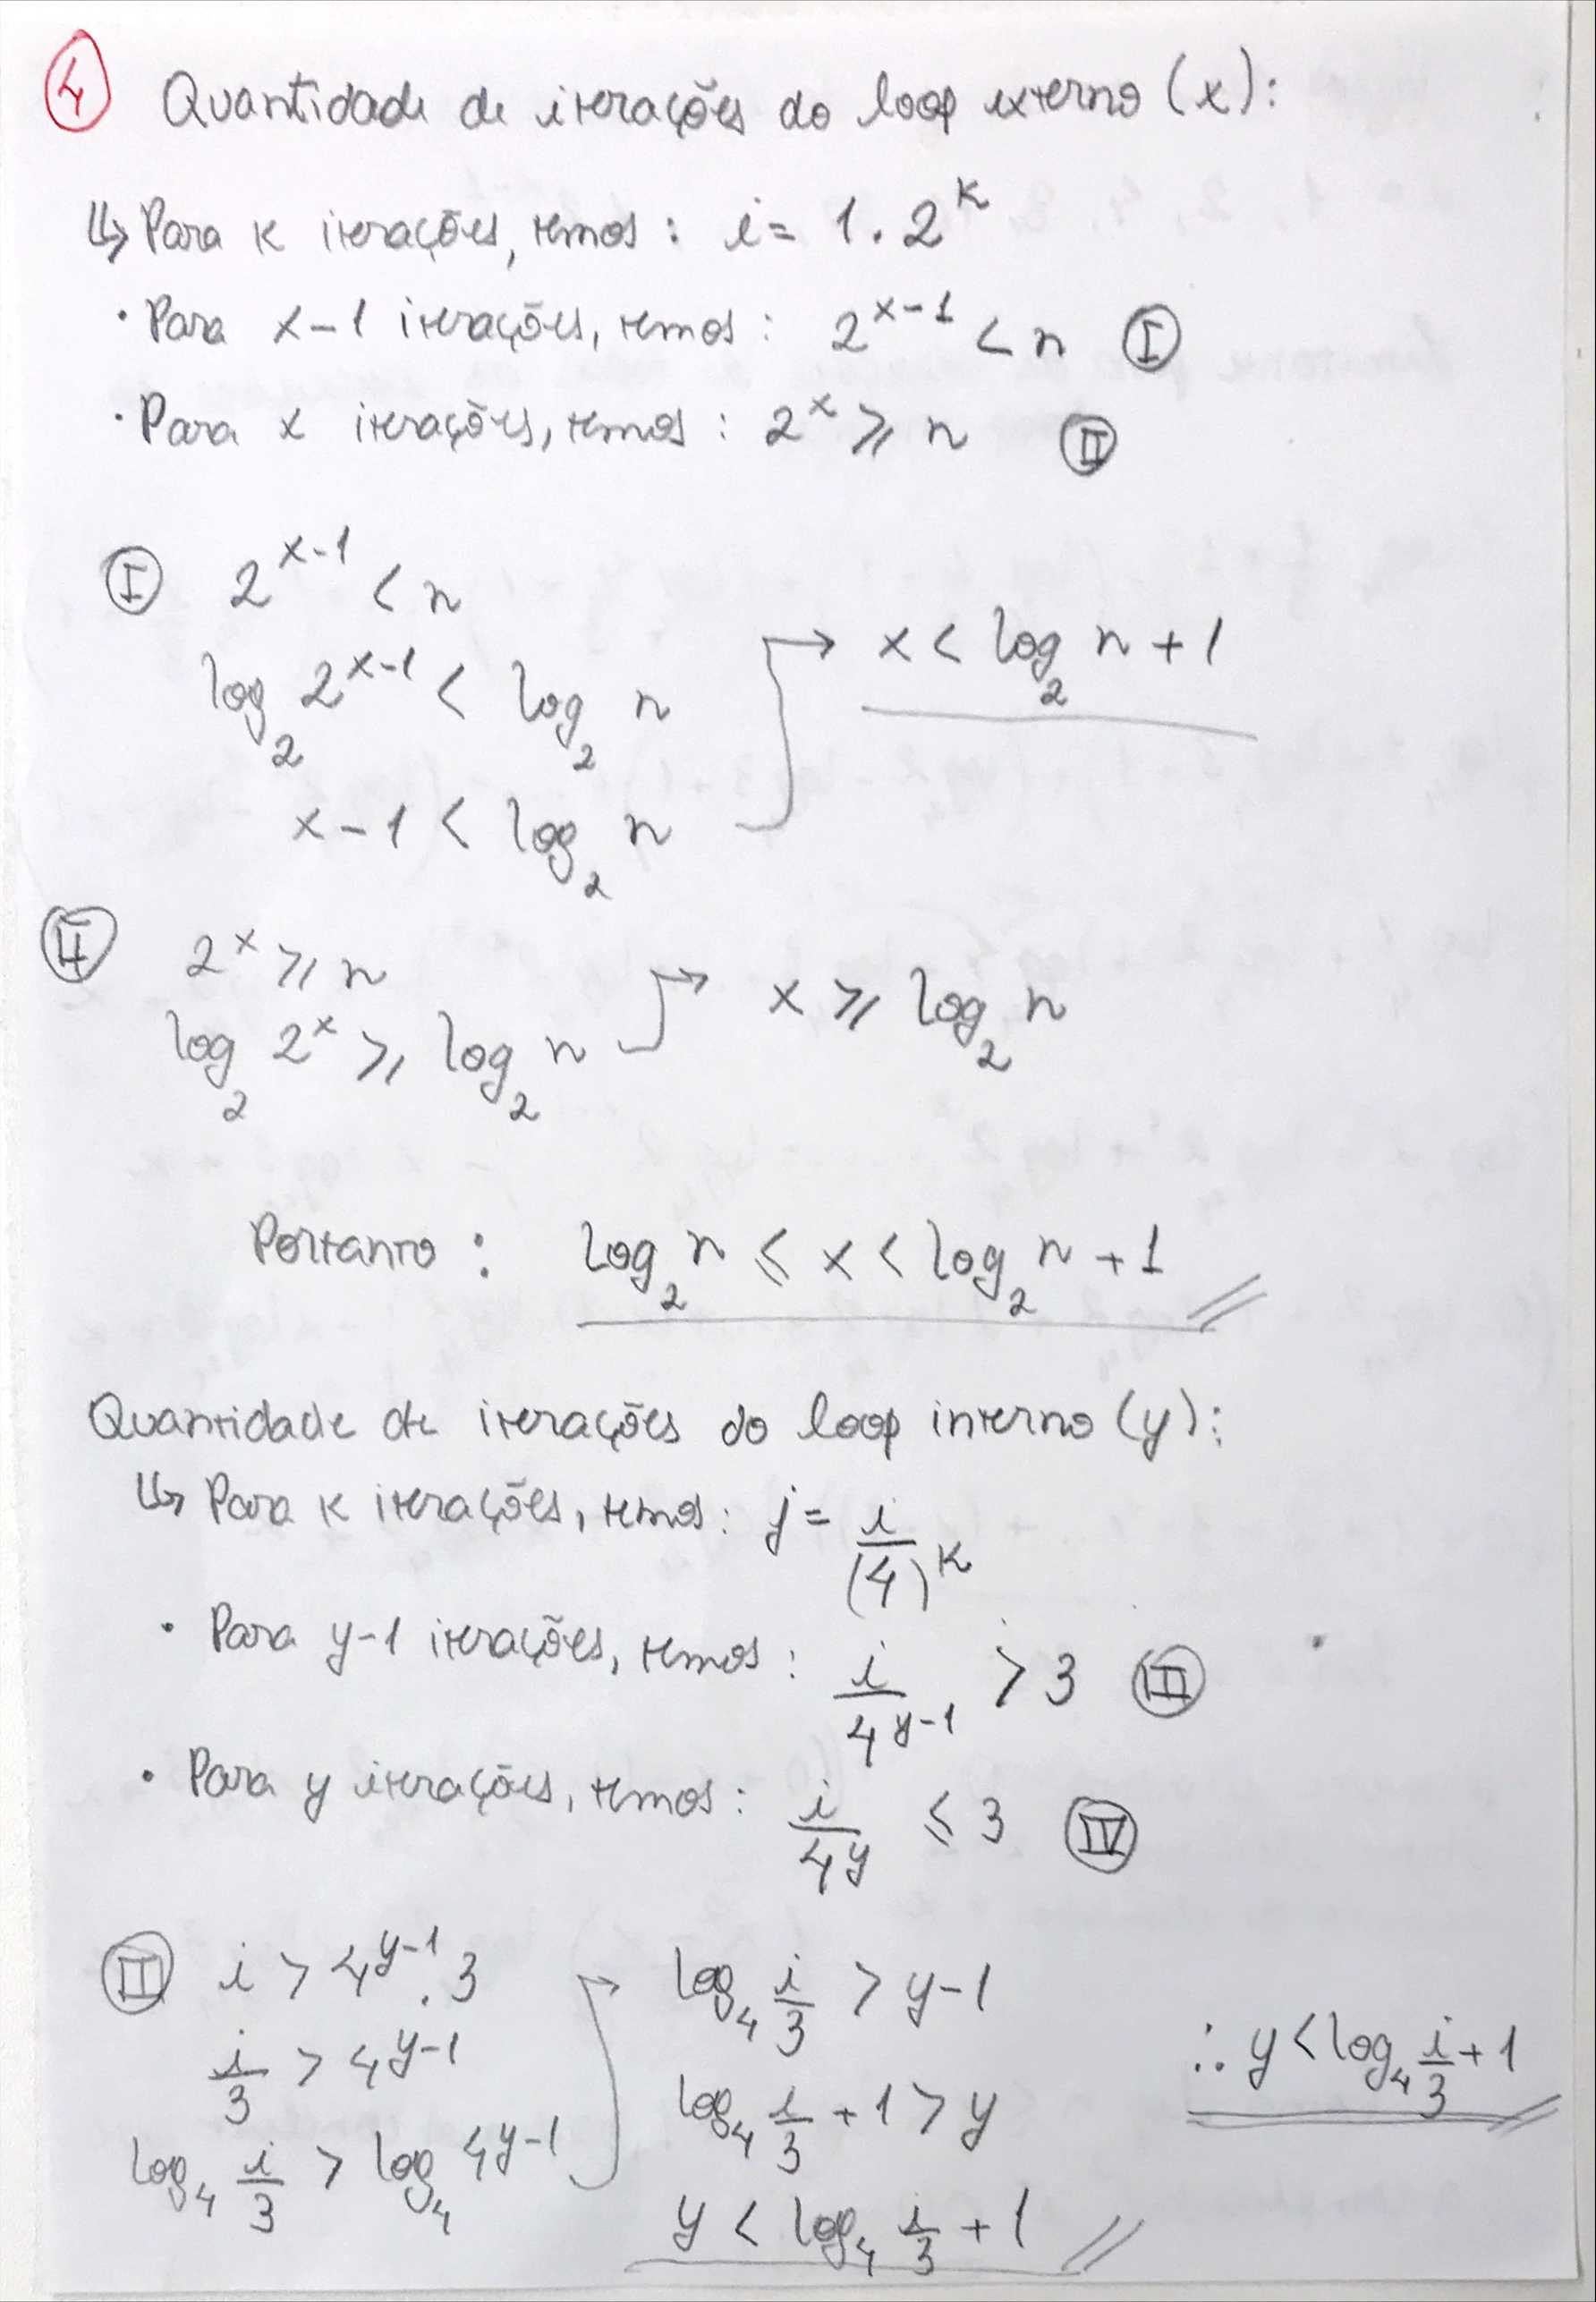 ④ Quantidade de iterações do loop externo (x):
↳ Para k iterações, temos: i = 1 . 2^k
• Para x-1 iterações, temos: 2^(x-1) < n Ⓘ
• Para x iterações, temos: 2^x ⩾ n Ⅱ
Ⓘ 2^(x-1) < n
log₂ 2^(x-1) < log₂ n
x-1 < log₂ n
→ x < log₂ n + 1
Ⅱ 2^x ⩾ n
log₂ 2^x ⩾ log₂ n
→ x ⩾ log₂ n
Portanto: log₂ n ⩽ x < log₂ n + 1 //
Quantidade de iterações do loop interno (y):
↳ Para k iterações, temos: j = i/(4)^k
• Para y-1 iterações, temos: i/4^(y-1) > 3 Ⅲ
• Para y iterações, temos: i/4^y ⩽ 3 Ⅳ
Ⅲ i > 4^(y-1) . 3
i/3 > 4^(y-1)
log₄ i/3 > log₄ 4^(y-1)
→ log₄ i/3 > y-1
log₄ i/3 + 1 > y
y < log₄ i/3 + 1 //
∴ y < log₄ i/3 + 1